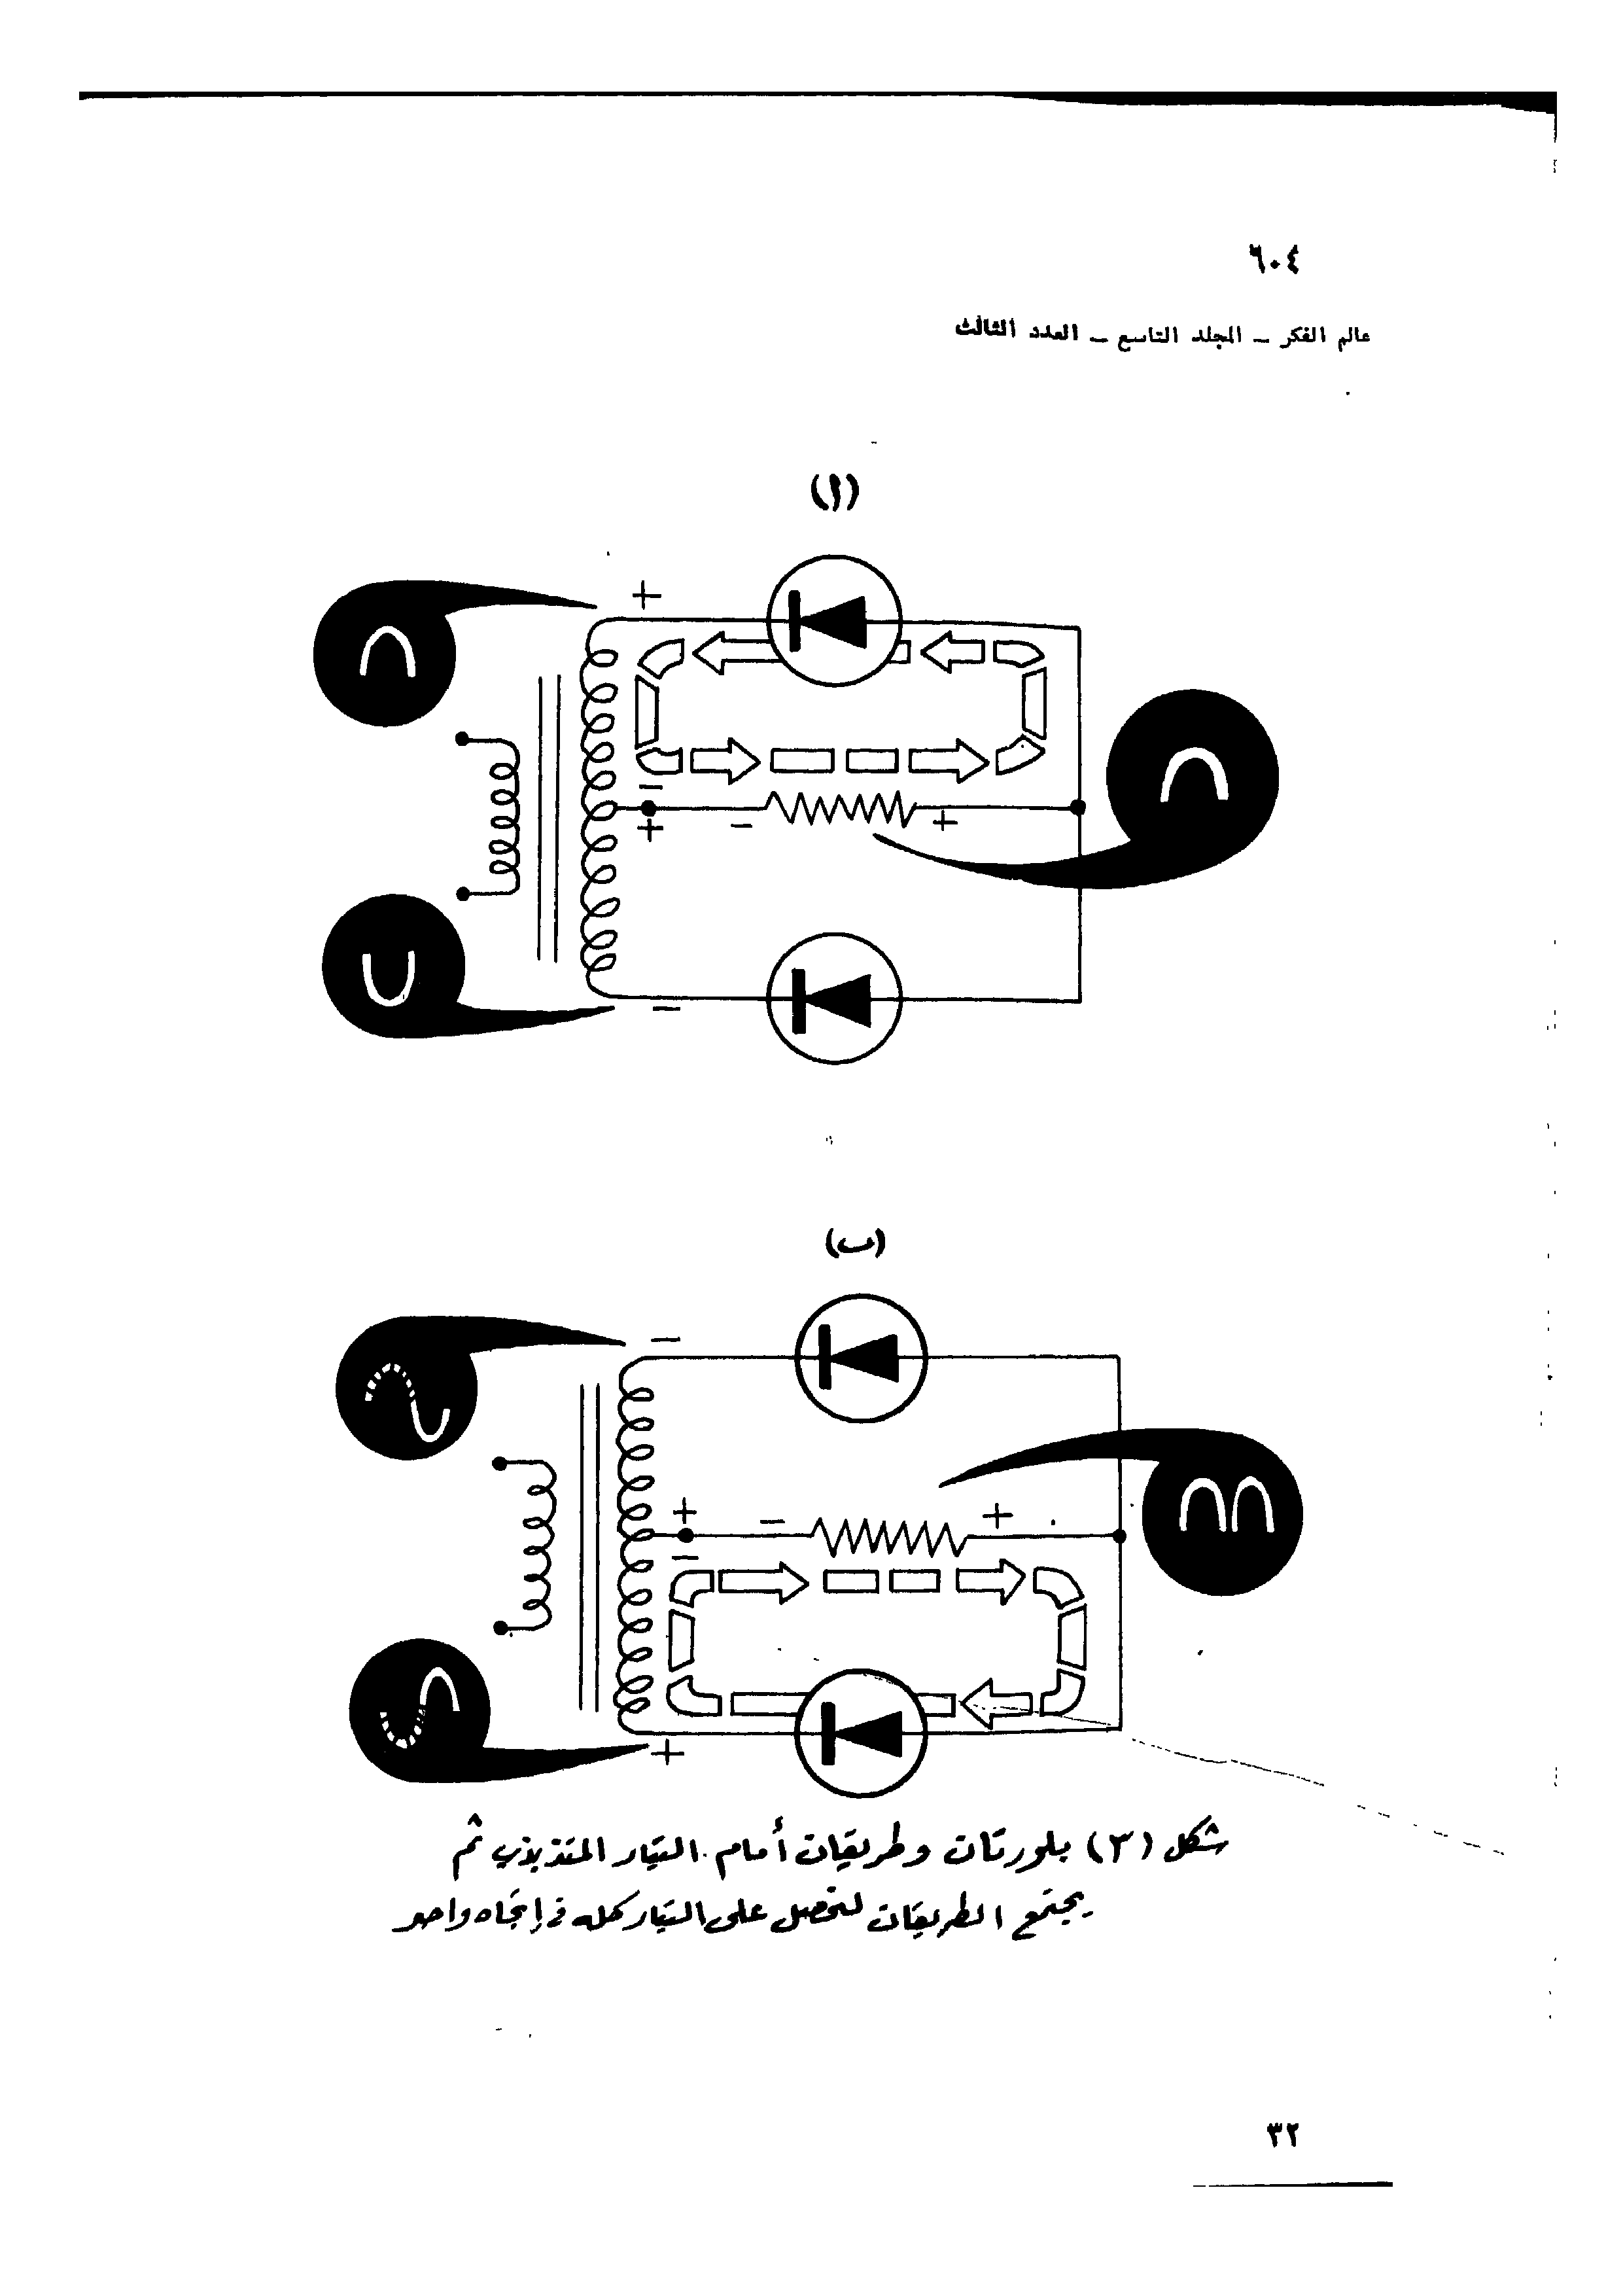 ٦٠٤
عالم الفكر – المجلد التاسع – العدد الثالث
(ا)
+
–
+
–
+
–
(ب)
–
+
–
+
–
+
شكل (٣) بلورتان وطريقان أمام التيار المتذبذب ثم
يجتمع الطريقان لنحصل على التيار كله فى إتجاه واحد
٣٢